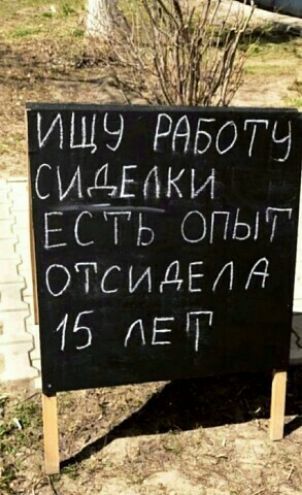 ИЩУ РАБОТУ
СИДЕЛКИ
ЕСТЬ ОПЫТ
ОТСИДЕЛА
15 ЛЕТ